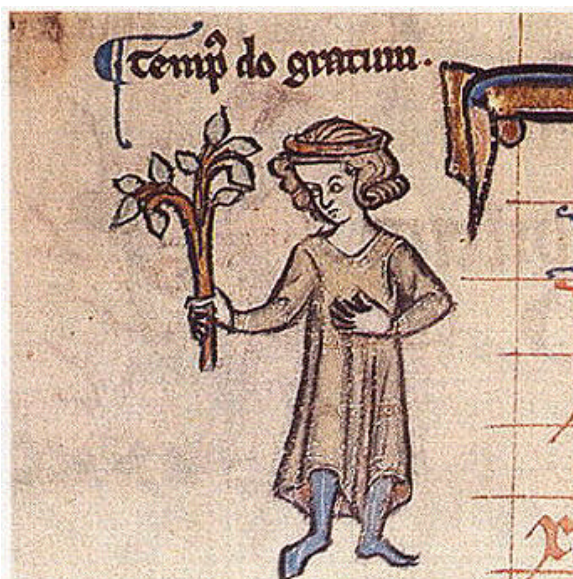 ¶ Tempꝰ do gratum.